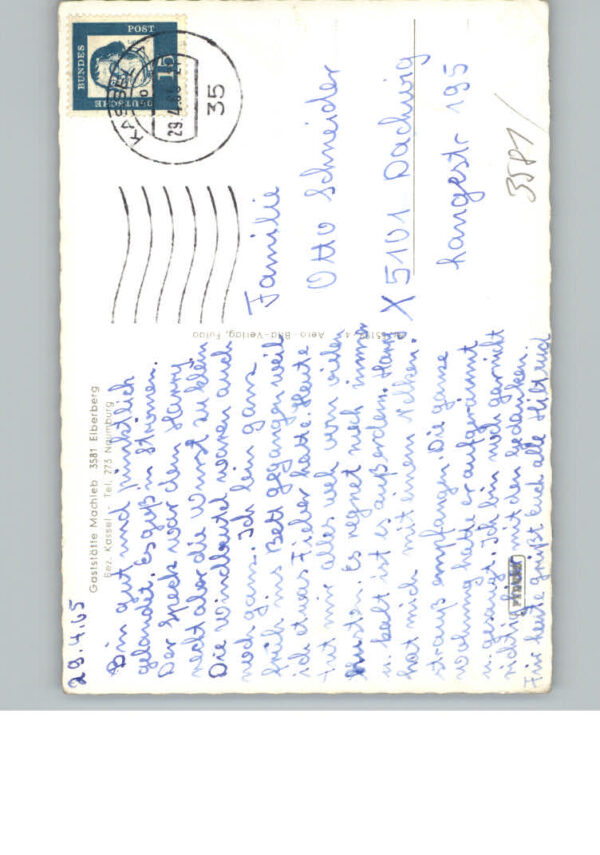 DEUTSCHE BUNDES POST 15
KASSEL
29.4.65
35
Familie
Otto Schneider
X 5101 Dachwig
Langestr 195
3581/
Aero-Bild-Verlag, Fulda
Gaststätte Machleb 3581 Elberberg
Bez. Kassel - Tel. 273 Naumburg
29.4.65
Bin gut und pünktlich
gelandet. Es guß in Strömen.
Der Speck war dem Harry
recht aber die Wurst zu klein
Die Windbeutel waren auch
noch ganz. Ich bin ganz
früh ins Bett gegangen weil
ich etwas Fieber hatte. Heute
tut mir alles weh vom vielen
Husten. Es regnet noch immer
u. kalt ist es außerdem. Harry
hat mich mit einem Nelken-
strauß empfangen. Die ganze
Wohnung hatte er aufgeräumt
u. gesaugt. Ich bin noch garnicht
richtig hier mit den Gedanken.
Für heute grüßt Euch alle Hilt und